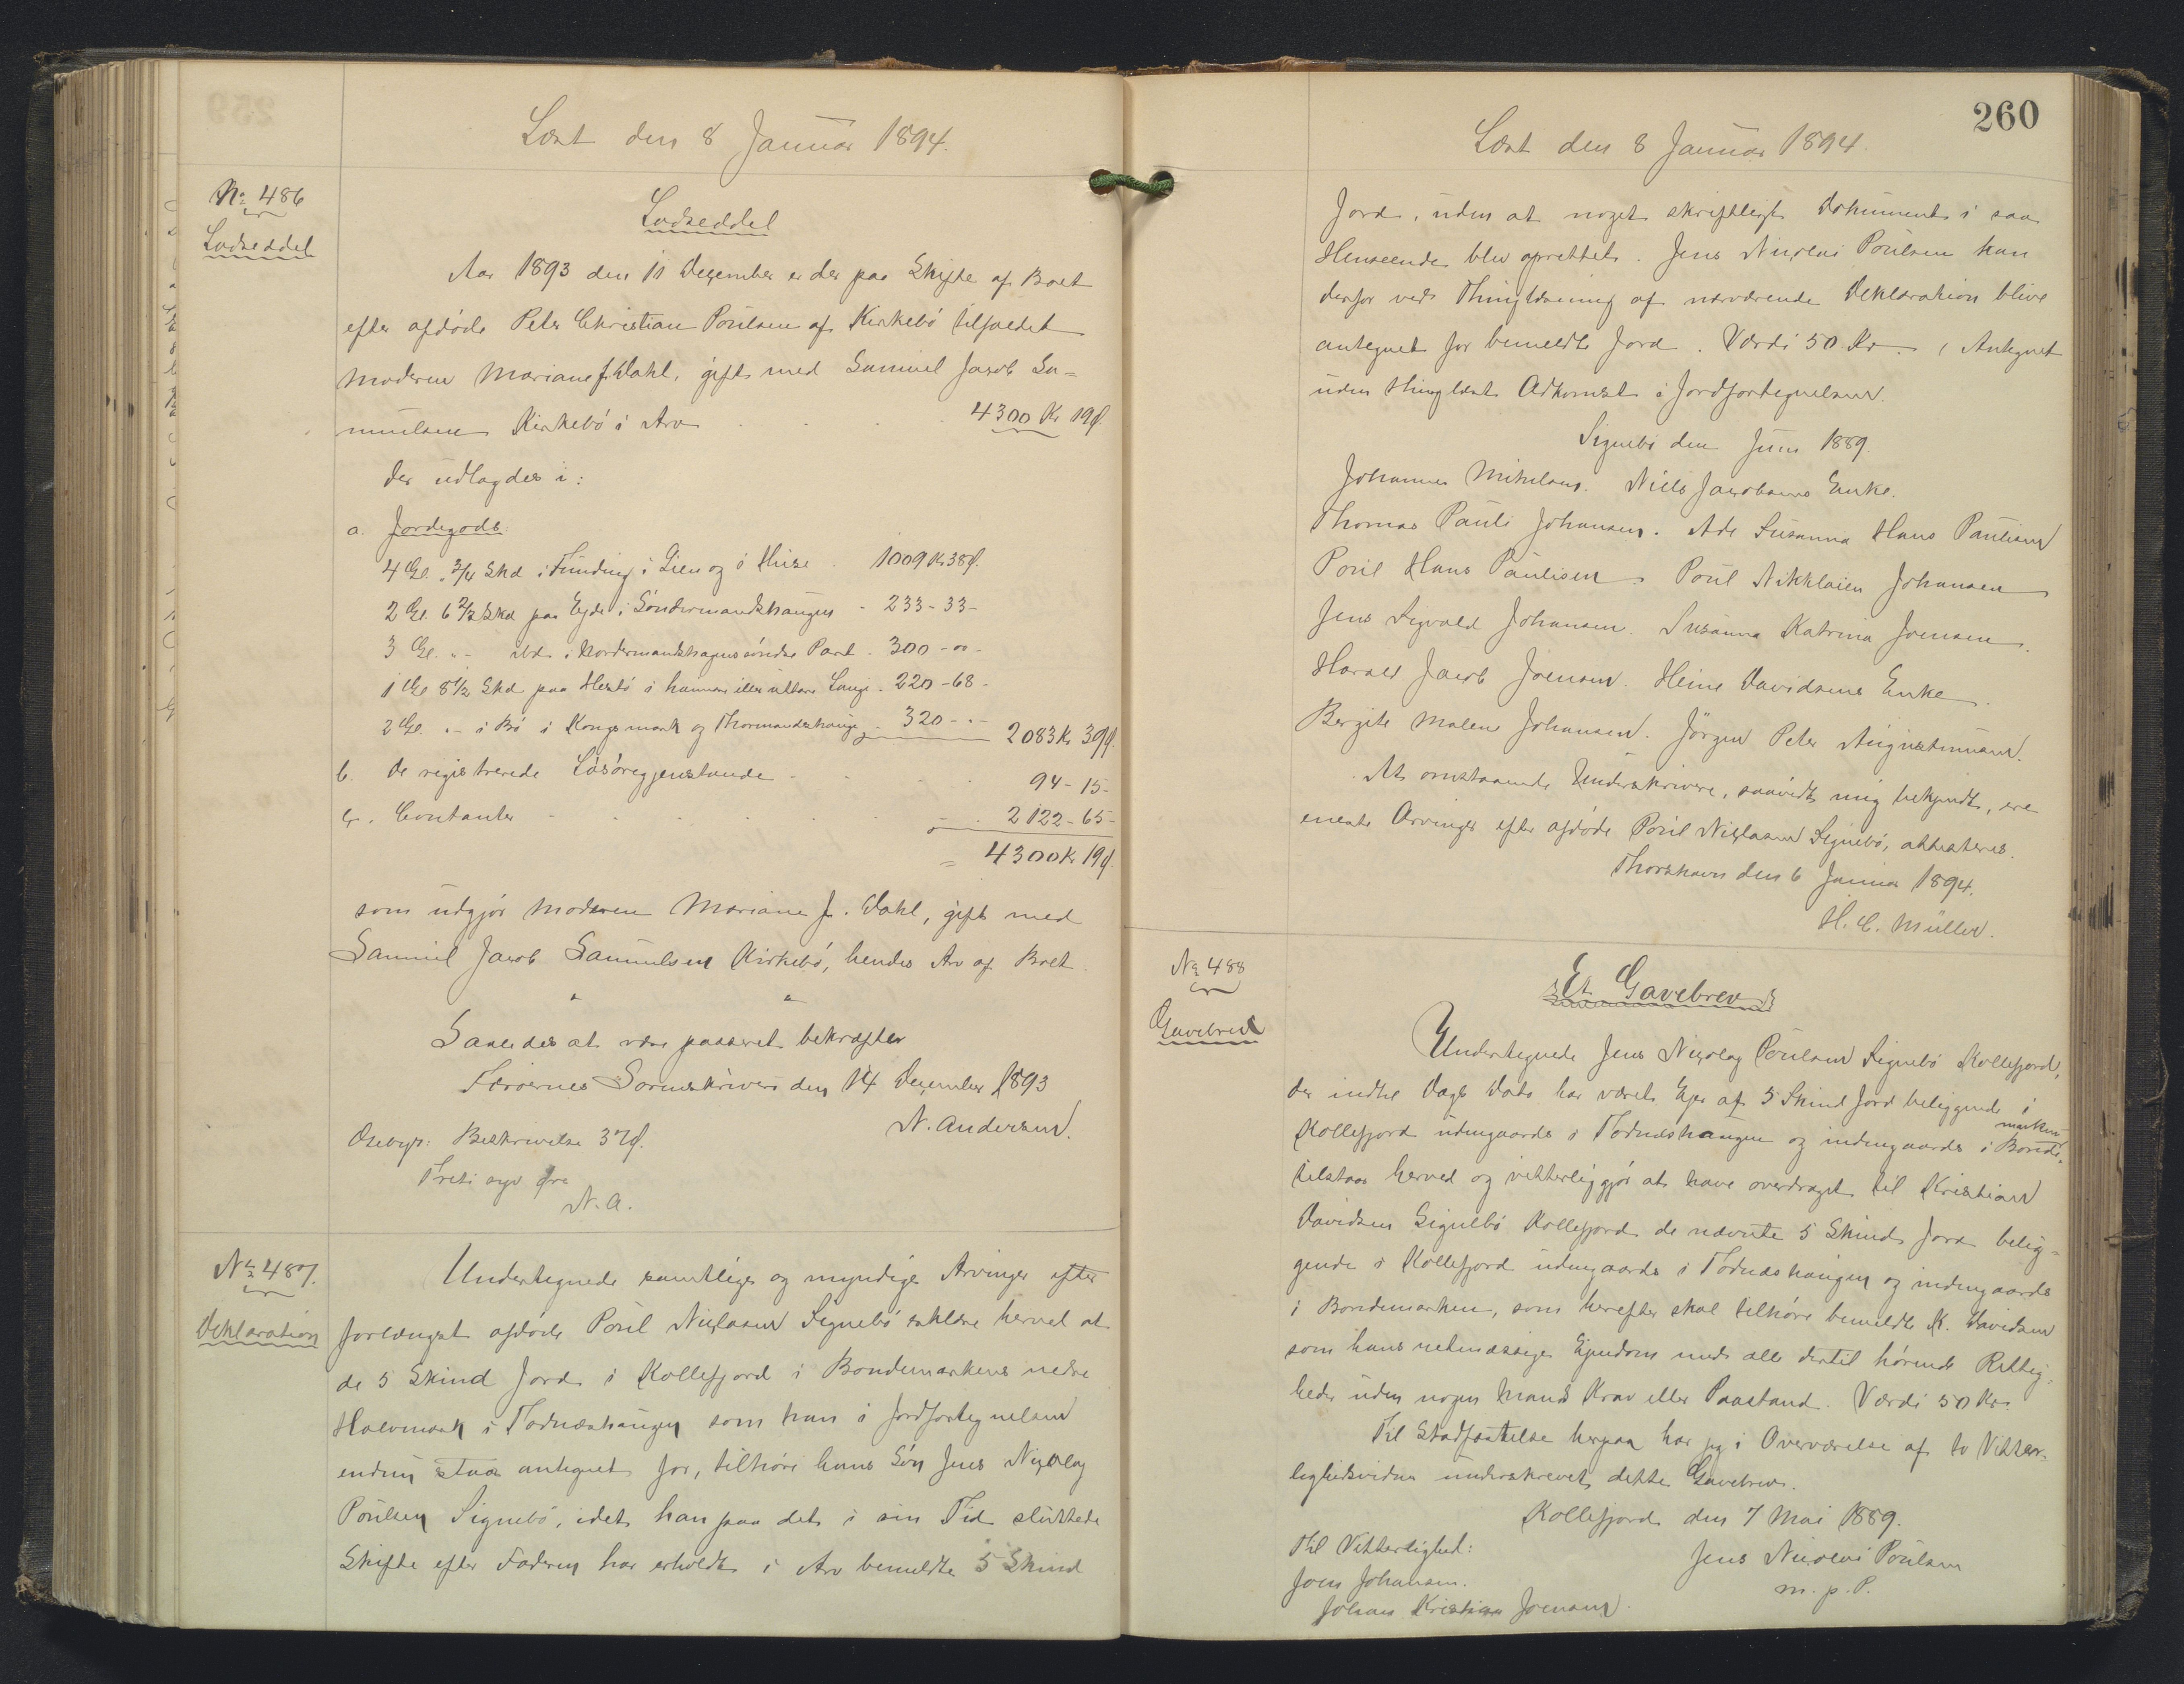 Læst den 8 Januar 1894.
No 486
Lodseddel
Lodseddel
Aar 1893 den 11 December er der paa Skifte af Boet
efter afdøde Peter Christian Poulsen af Kirkebö tilfaldet
Moderen Mariane f. Dahl, gift med Samuel Jacob Sa=
muelsen Kirkebö i Arv 4300 Kr 19 Ø.
der udlagdes i:
a. Jordegods.
4 Gl. " 3/4 Skd i Funding i Lien og ó Huse 1009 Kr 38 Ø.
2 Gl. 6 2/3 Skd paa Ejde i Söndermandshaugen - 233-33-
3 Gl. "- ibd. i Nordermandshagens söndre Part - 300-00-
1 Gl 8 1/2 Skd paa Hestö i hannara eller uttara Lauge - 220-68-
2 Gl. "- i Bö i Kongsmark og Thormandshauge - 320-"- 2083 Kr 39 Ø.
b. De registrerede Lösöregjenstande 94-15-
c. Contanter 2122-65-
= 4300 Kr 19 Ø.
som udgjör Moderen Mariane f. Dahl, gift med
Samuel Jacob Samuelsen Kirkebö, hendes Arv af Boet.
" "
Saaledes at være passeret bekræfter
Færöernes Sorenskriveri den 14 December 1893
N. Andersen.
Gebyr: Beskrivelse 37 Ø.
Treti syv Øre
N. A.
No 487.
Deklaration
Undertegnede samtlige og myndige Arvinger efter
forlængst afdöde Poul Niclasen Signebö erklære herved at
de 5 Skind Jord i Kollefjord i Bondemarkens nedre
Halvmark i Todnæshaugen som han i Jordfortegnelsen
endnu staa antegnet for, tilhöre hans Sön Jens Nicolay
Poulsen Signebö, idet han paa det i sin Tid sluttede
Skifte efter Faderen har erholdt i Arv bemeldte 5 Skind
260
Læst den 8 Januar 1894.
Jord, uden at noget skriftligt Dokument i saa
Henseende blev oprettet. Jens Nicolai Poulsen kan
derfor ved Thinglæsning af nærværende Deklaration blive
antegnet for bemeldte Jord. Værdi 50 Kr. ( Antegnet
uden thinglæst Adkomst i Jordfortegnelsen.
Signebö den Juni 1889.
Johannes Mikelsens. Niels Jacobsens Enke.
Thomas Pauli Johansen. Ade Susanna Hans Paulisen
Poul Hans Paulisen. Poul Nikklaien Johansen
Jens Sigvald Johansen. Susanna Katrina Joensen.
Harald Jacob Joensen. Heine Davidsens Enke.
Bergite Malene Johansen. Jörgen Peter Augustinusen.
At omstaaende Underskrivere, saavidt mig bekjendt, ere
eneste Arvinger efter afdöde Poul Niclasen Signebö, attesteres.
Thorshavn den 6 Januar 1894.
H. C. Müller.
No 488
Gavebrev
Et Gavebrev
Undertegnede Jens Nicolay Poulsen Signebö Kollefjord,
der indtil Dags Dato har været Ejer af 5 Skind Jord beliggende i
Kollefjord udengaards i Todnæshaugen og indengaards i Bonde-
marken
tilstaar herved og vitterliggjör at have overdraget til Kristian
Davidsen Signebö Kollefjord de nævnte 5 Skind Jord belig-
gende i Kollefjord udengaards i Todnæshaugen og indengaards
i Bondemarken, som herefter skal tilhöre bemeldte K. Davidsen
som hans retmæssige Ejendom med alle dertil hörende Rettig-
heder uden nogen Mands Krav eller Paastand. Værdi 50 Kr.
Til Stadfæstelse herpaa har jeg i Overværelse af to Vitter-
lighedsvidner underskrevet dette Gavebrev.
Kollefjord den 7 Mai 1889.
Til Vitterlighed:
Jens Nicolai Poulsen
Joen Johansen.
m. p. P.
Johan Kristian Joensen.